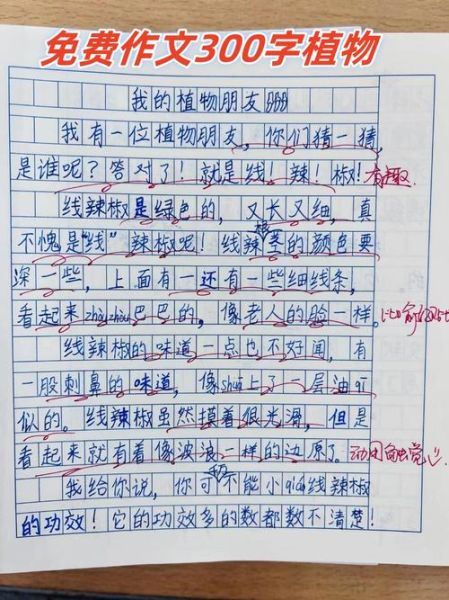 免费作文300字植物
我的植物朋友
我有一位植物朋友，你们猜一猜，
是谁呢？答对了！就是线！辣！椒！有趣。
线辣椒是绿色的，又长又细，真
不愧是“线”辣椒呢！线辣根茎的颜色要
深一些，上面有一还有一些细线条，
看起来zhòuzhòu巴巴的，像老人的脸一样。
线辣椒的味道一点也不好闻，有
一股刺鼻的味道，像shuā上了一层油qī
似的。线辣椒虽然摸着很光滑，但是
看起来就有着像波浪一样的边原了。动用触觉
我给你说，你可千不能小qiáo线辣椒
的功效！它的功效多的数都数不清楚！